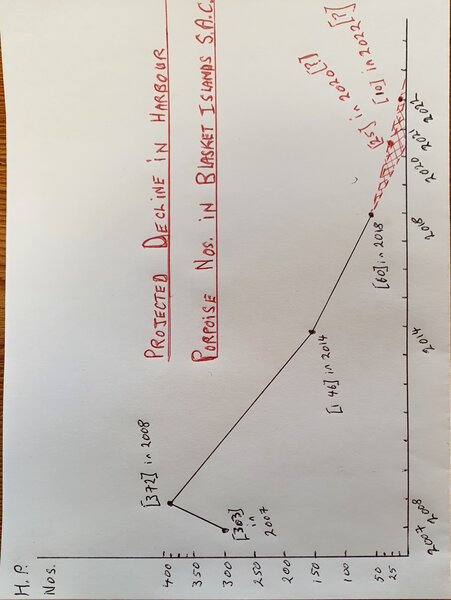 PROJECTED DECLINE IN HARBOUR
PORPOISE NOS. IN BLASKET ISLANDS S.A.C.
H.P.
Nos.
400
350
300
250
200
150
100
50
25
[303]
in
2007
[372] in 2008
[146] in 2014
[60] in 2018
[25] in 2020 [?]
[10] in 2022 [?]
2007
2008
2014
2018
2020
2021
2022